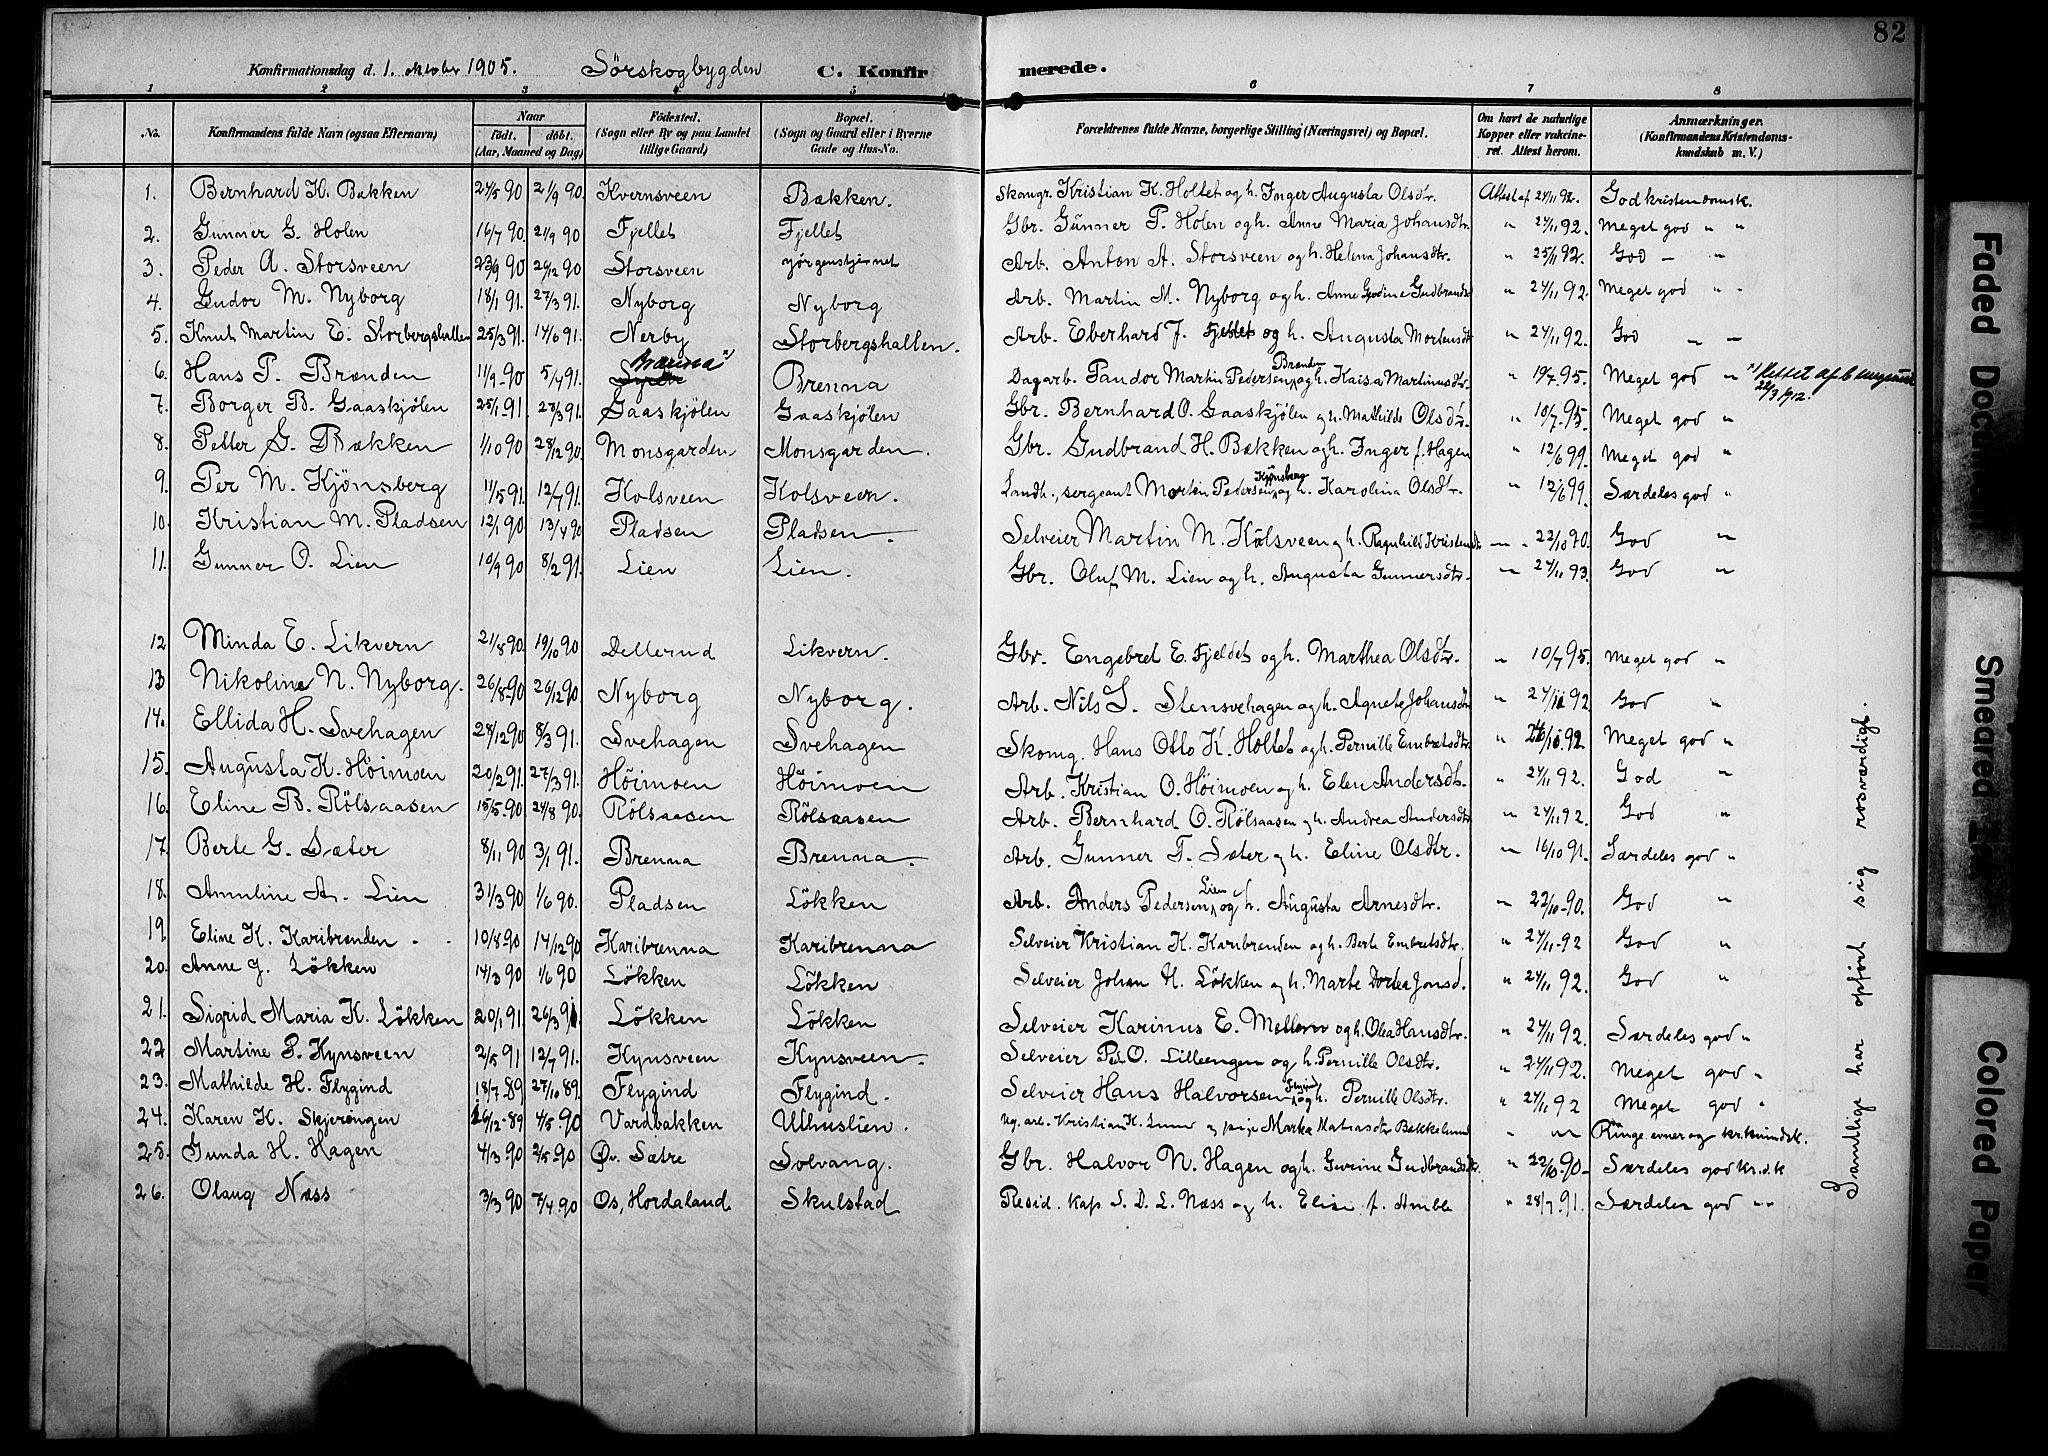 82
Konfirmationsdag d. 1. oktober 1905. Sörskogbygden C. Konfirmerede.
1 2 3 4 5 6 7 8
No. Konfirmandens fulde Navn (ogsaa Efternavn) Naar født. døbt. (Aar, Maaned og Dag) Fødested. (Sogn eller By og paa Landet tillige Gaard) Bopæl. (Sogn og Gaard eller i Byerne Gade og Hus-No. Forældrenes fulde Navne, borgerlige Stilling (Næringsvei) og Bopæl. Om havt de naturlige Kopper eller vakcineret. Attest herom. Anmærkninger. (Konfirmandens Kristendomskundskab m. V.)
1. Bernhard K. Bækken 24/5 90 21/9 90. Kvernsveen Bækken. Skomgr. Kristian K. Holtet og h. Inger Augusta Olsdtr. Attest af 24/11 92. God kristendomsk.
2. Gunner G. Holen 16/7 90. 21/9 90 Fjellet Fjellet Gbr. Gunner P. Holen og h. Anne Maria Johansdtr. " 24/11 92. Meget god " "
3. Peder A. Storsveen 23/9 90 26/12 90 Storsveen Jörgenstjernet Arb. Anton A. Storsveen og h. Helena Johansdtr. " 25/11 92. God - "
4. Gudor M. Nyborg 18/1 91. 27/3 91. Nyborg Nyborg Arb. Martin M. Nyborg og h. Anne Gudbrandsd " 24/11 92. Meget god " "
5. Knut Martin E. Storbergshallen 25/3 91. 14/6 91. Nerby Storbergshallen. Arb. Eberhard J. Fjellet og h. Augusta Mortensdt " 24/11 92. God " "
6. Hans P. Brænden 11/9-90 5/4 91. Brænna x) Brenna Dagarb. Pandor Martin Pedersen Brænden og h. Kaisa Martinusdtr " 19/7 95. Meget god " x) Rettet af 22/3 1912.
7. Borger B. Gaaskjölen 25/1 91. 28/3 91. Gaaskjölen Gaaskjölen Gbr. Bernhard O. Gaaskjölen og h. Mathilde Olsdtr. " 10/7-95. Meget god "
8. Petter G. Bækken 1/10 90 28/12 90. Monsgarden Monsgarden. Gbr. Gudbrand H. Bækken og h. Inger f. Hagen " 12/6 99. Meget god "
9. Per M. Kjönsberg 11/5 91. 12/7 91. Kolsveen Kolsveen. Landh., sergeant Martin Pedersen Kjönsberg og h. Karolina Olsdtr. " 12/6 99. Særdeles god "
10. Kristian M. Pladsen 12/1 90. 13/4 90 Pladsen Pladsen. Selveier Martin M. Kölsveen og h. Ragnhild Kristensdtr " 22/10 90. God "
11. Gunner O. Lien 10/9 90 8/2 91. Lien Lien. Gbr. Oluf M. Lien og h. Augusta Gunnersdtr. " 24/11 93. God "
12 Minda E. Likvern 21/8 90. 19/10 90. Dellerud Likvern. Gbr. Engebret E. Fjeldet og h. Marthea Olsdtr. " 10/7 95. Meget god "
13 Nikoline N. Nyborg. 26/8-90 26/12 90. Nyborg Nyborg. Arb. Nils S. Stensvehagen og h. Agnete Johansdtr " 24/11 92 God "
14. Ellida H. Svehagen 28/12 90 8/3 91. Svehagen Svehagen Skomg. Hans Otto K. Holtet og h. Pernille Embretsdtr. " 26/10 92 Meget god "
15. Augusta K. Höimoen 20/2 91. 27/3 91. Höimoen Höimoen Arb. Kristian O. Höimoen og h. Elen Andersdt. " 24/11 92. God "
16. Eline B. Rölsaasen 15/5-90 24/8 90. Rölsaasen Rölsaasen Arb. Bernhard O. Rölsaasen og h. Andrea Andersdtr. " 24/11 92. God "
17. Berte G. Sæter 8/11 90 3/1 91. Brenna Brenna Arb. Gunner T. Sæter og h. Eline Olsdtr. " 16/10 91. Særdeles god "
18. Annline A. Lien 31/3 90 1/6 90. Pladsen Lökken Arb. Anders Pedersen Lien og h. Augusta Arnesdtr. " 22/10-90. God "
19. Eline K. Karibrænden 10/8-90 14/12 90 Karibrenna Karibrenna Selveier Kristian K. Karibrænden og h. Berte Embretsdtr. " 24/11-92 God "
20. Anne J. Lökken 14/3 90 1/6 90 Lökken Lökken Selveier Johan H. Lökken og h. Marte Dortea Jonsd. " 24/11 92. God "
21. Sigrid Maria K. Lökken 20/1 91. 26/3 91. Lökken Lökken Selveier Karinus E. Mellem og h. Olea Hansdtr. " 24/11 92. Særdeles god "
22 Martine P. Kynsveen 2/5 91 12/7 91. Kynsveen Kynsveen Selveier Ped. O. Lilleengen og h. Pernille Olsdtr. " 24/11 92. Meget god "
23. Mathilde H. Flygind 18/7 89 27/10 89. Flygind Flygind. Selveier Hans Halvorsen Flygind og h. Pernille Olsdtr. " 24/11 92 Meget god "
24. Karen K. Skjerengen 26/12-89 4/5-90 Vardbakken Uthuslien. Ug. arb. Kristian K. Lunn og pige Marka Matiasdtr Bakkelund " " Ringe evner og kr.kundsk.
25. Gunda H. Hagen 4/3 90 2/5-90 Öv. Sætre Solvang. Gbr. Halvor N. Hagen og h. Gurine Gudbrandsdtr. " 22/10-90- Særdeles god kr.d.k
26. Olaug Næss 3/3 90 7/4 90 Os, Hordaland Skulstad Resid. kap S. D. L. Næss og h. Elise f. Amble " 28/7 91. Særdeles god " "
Samtlige har opført sig rosværdigt.
Faded Document
Smeared Ink
Colored Paper